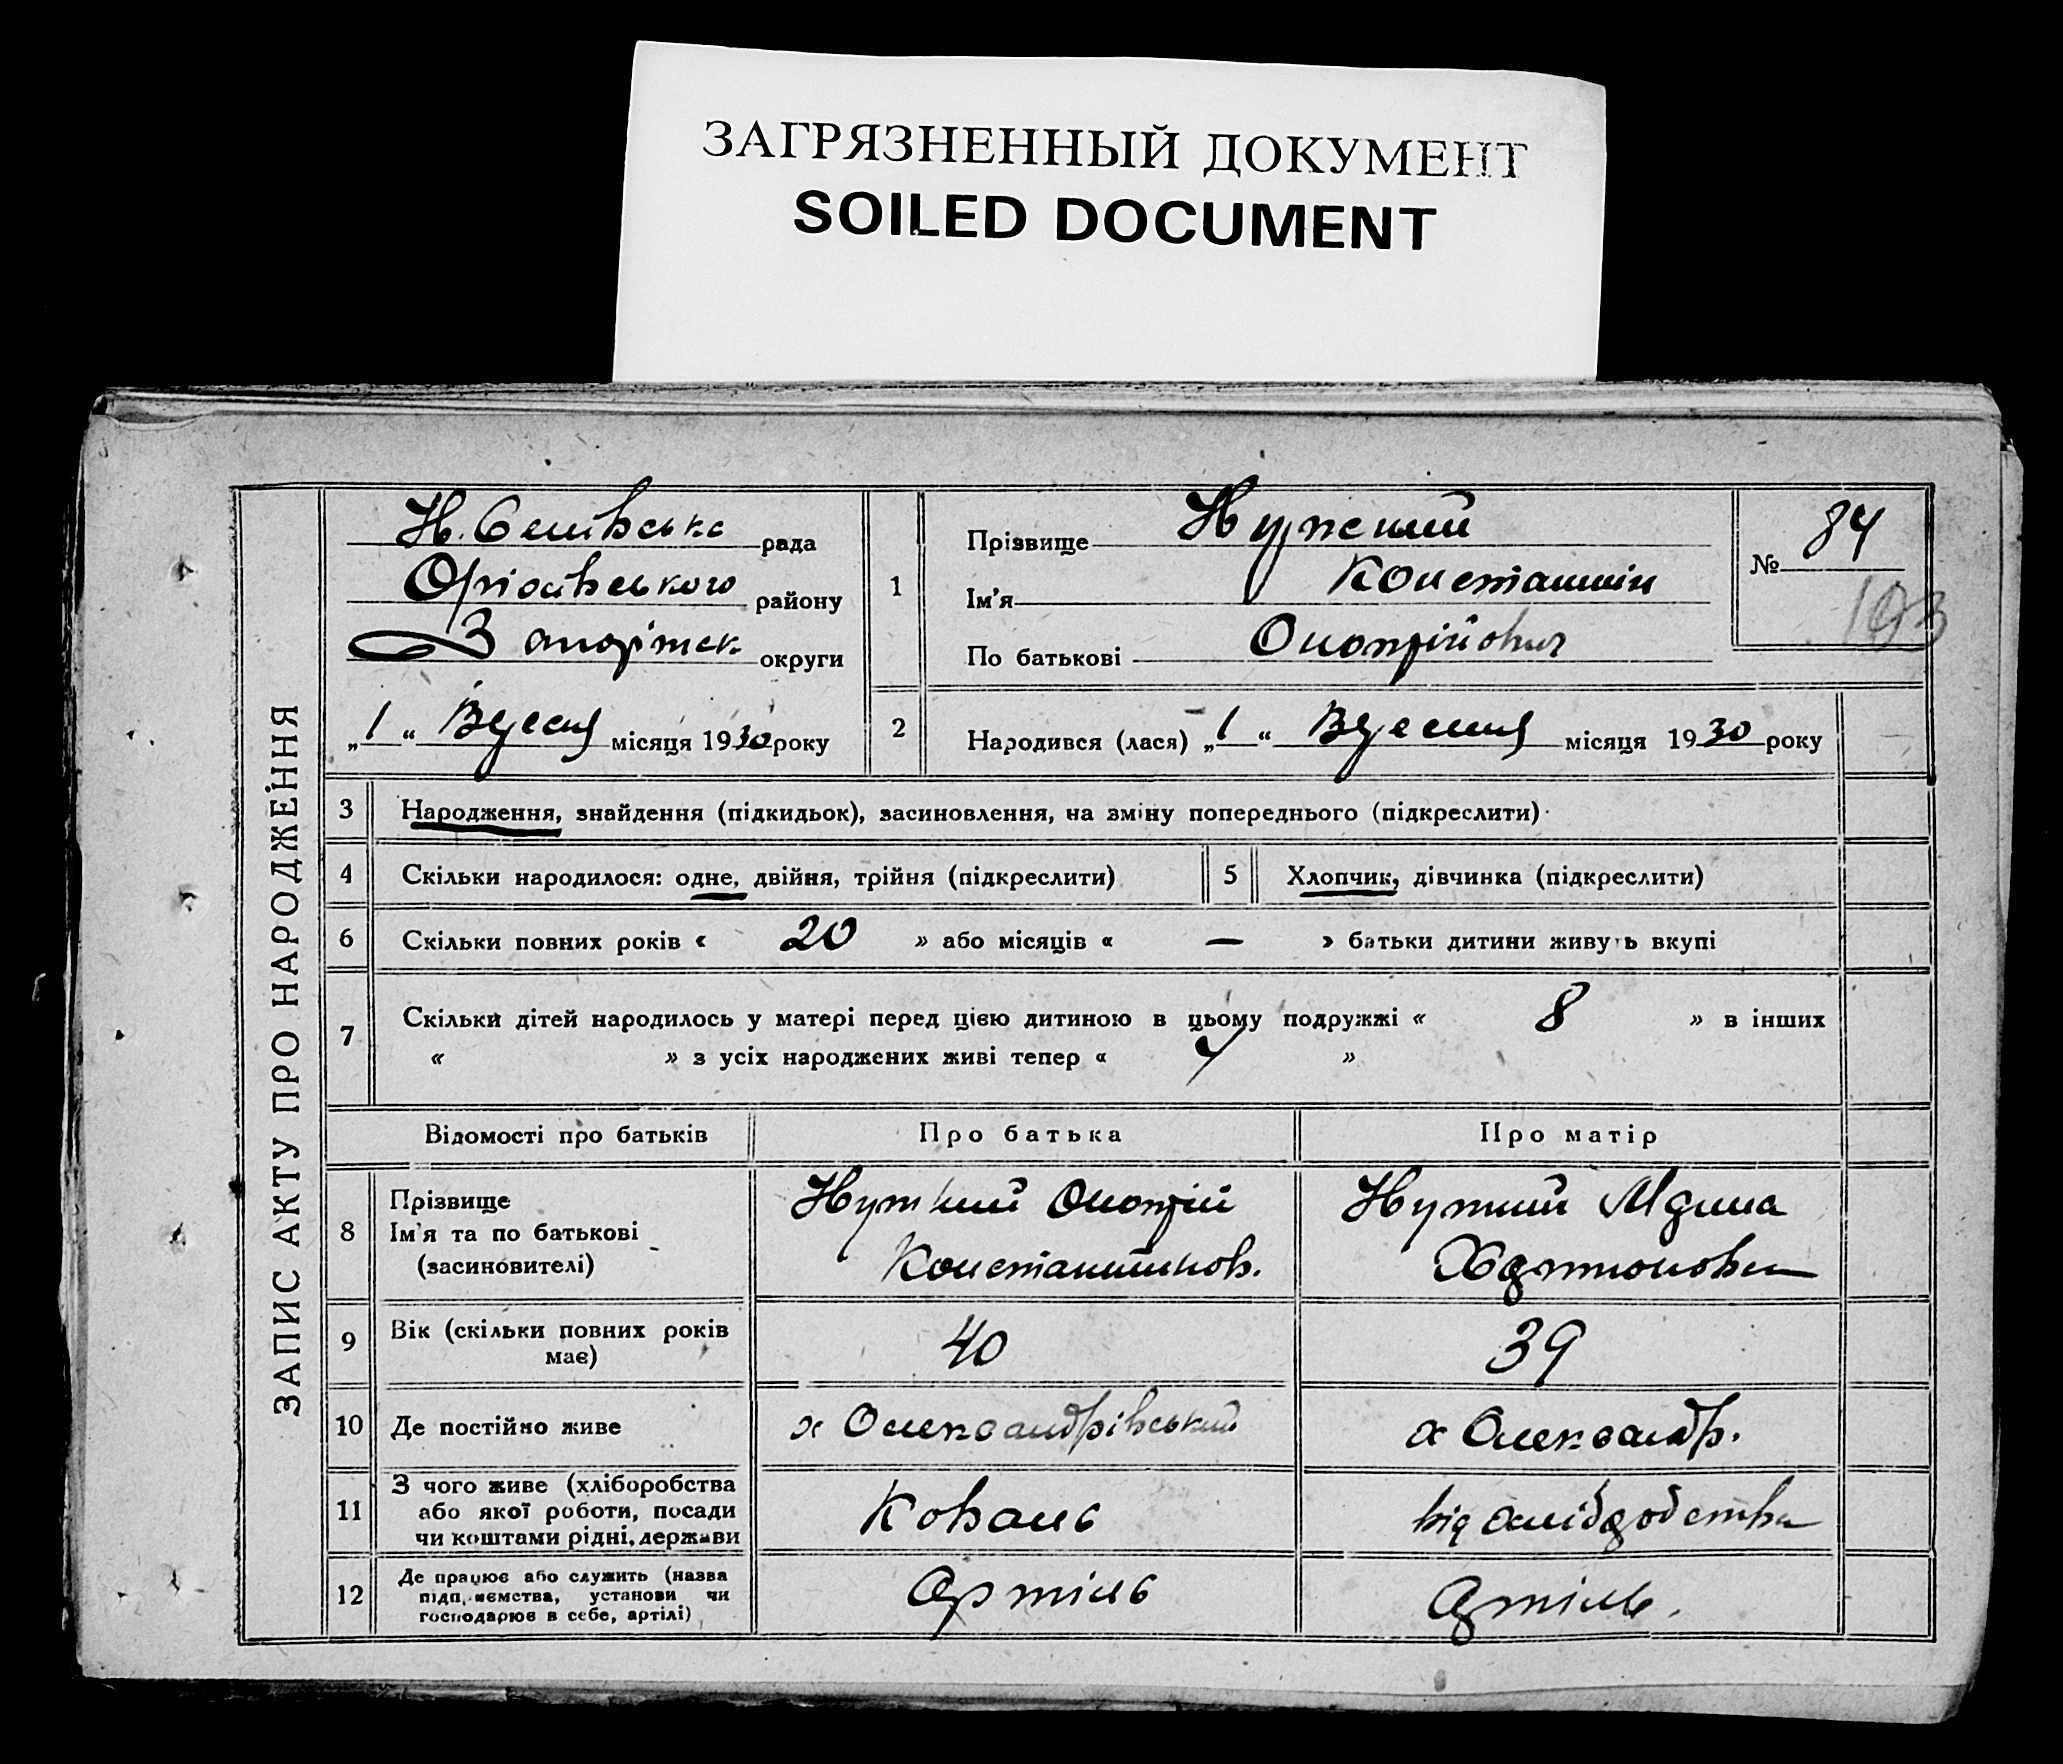 ЗАГРЯЗНЕННЫЙ ДОКУМЕНТ
SOILED DOCUMENT
ЗАПИС АКТУ ПРО НАРОДЖЕННЯ
рада
Оріхівського району
Запоріжск. округи
„1“ Вересня місяця 1930 року
1
Прізвище
Ім'я Константин
По батькові Онопрійович
№ 84
193
2
Народився (лася) „1“ Вересня місяця 1930 року
3 Народження, знайдення (підкидьок), засиновлення, на зміну попереднього (підкреслити)
4 Скільки народилося: одне, двійня, трійня (підкреслити)
5 Хлопчик, дівчинка (підкреслити)
6 Скільки повних років « 20 » або місяців « — » батьки дитини живуть вкупі
7 Скільки дітей народилось у матері перед цією дитиною в цьому подружжі « 8 » в інших
« » з усіх народжених живі тепер « »
Відомості про батьків Про батька Про матір
8 Прізвище
Ім'я та по батькові
(засиновителі)
Онопрій
Константинов.
9 Вік (скільки повних років
має)
40 39
10 Де постійно живе х Олександрівський х Олександр.
11 З чого живе (хліборобства
або якої роботи, посади
чи коштами рідні, держави
Коваль
12 Де працює або служить (назва
підприємства, установи чи
господарює в себе, артілі)
Артіль Артіль.